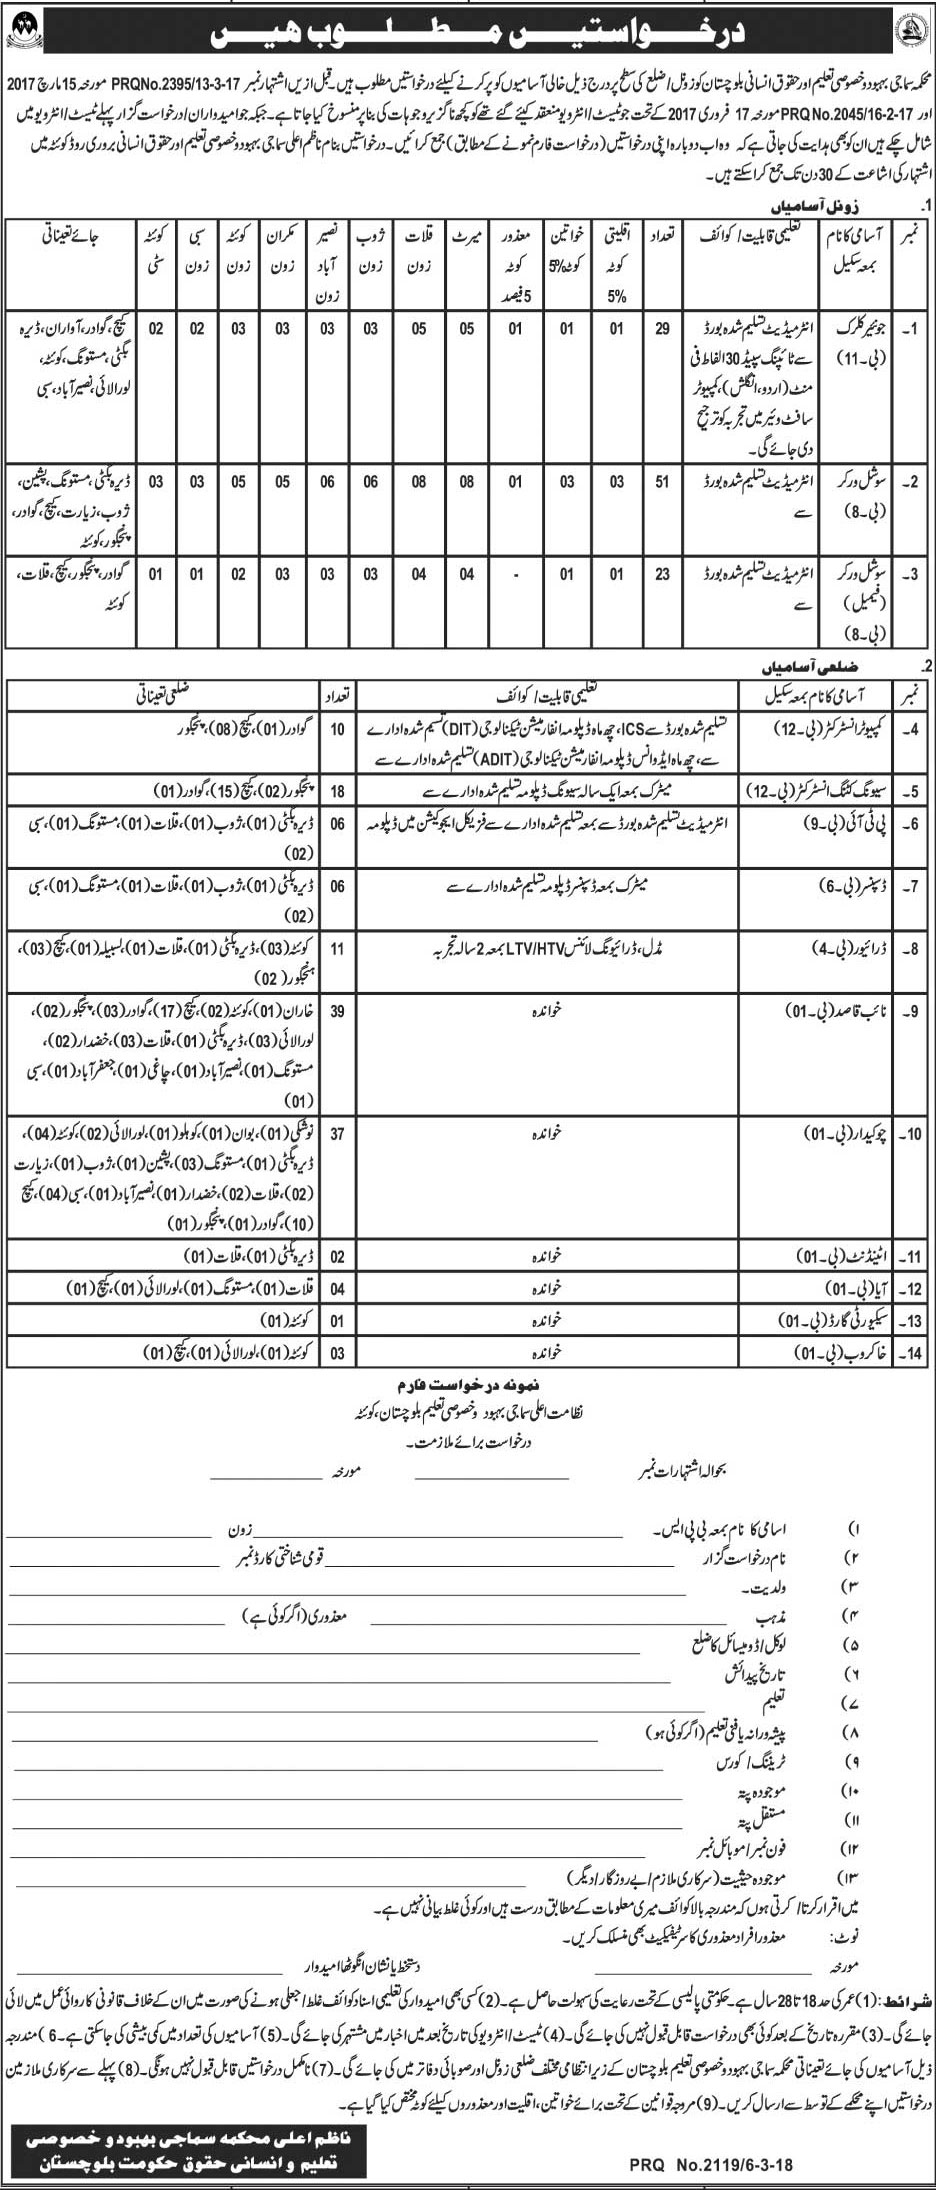 درخواستیں مطلوب ہیں
محکمہ سماجی بہبود و خصوصی تعلیم اور حقوق انسانی بلوچستان کو زونل/ اضلع کی سطح پر درج ذیل خالی آسامیوں کو پر کرنے کیلئے درخواستیں مطلوب ہیں۔ قبل ازیں اشتہار نمبر PRQNo.2395/13-3-17 مورخہ 15 مارچ 2017
اور PRQ No.2045/16-2-17 مورخہ 17 فروری 2017 کے تحت جو ٹیسٹ/ انٹرویو منعقد کیئے گئے تھے کو کچھ ناگزیر وجوہات کی بنا پر منسوخ کیا جاتا ہے۔ جبکہ جو امیدواران/ درخواست گزار پہلے ٹیسٹ/ انٹرویو میں
شامل چکے ہیں ان کو بھی ہدایت کی جاتی ہے کہ وہ اب دوبارہ اپنی درخواستیں (درخواست فارم نمونے کے مطابق) جمع کرائیں۔ درخواستیں بنام ناظم اعلی سماجی بہبود و خصوصی تعلیم اور حقوق انسانی بروری روڈ کوئٹہ میں
اشتہار کی اشاعت کے 30 دن تک جمع کرا سکتے ہیں۔
1۔ زونل آسامیاں
نمبر | آسامی کا نام بمعہ سکیل | تعلیمی قابلیت/ کوائف | تعداد | اقلیتی کوٹہ 5% | خواتین کوٹہ 5% | معذور کوٹہ 5 فیصد | میرٹ | قلات زون | ژوب زون | نصیر آباد زون | مکران زون | کوئٹہ زون | سبی زون | کوئٹہ سٹی | جائے تعیناتی
1۔ | جونیئر کلرک (بی۔11) | انٹرمیڈیٹ تسلیم شدہ بورڈ سے ٹائپنگ سپیڈ 30 الفاظ فی منٹ (اردو، انگلش)، کمپیوٹر سافٹ وئیر میں تجربہ کو ترجیح دی جائے گی۔ | 29 | 01 | 01 | 01 | 05 | 05 | 03 | 03 | 03 | 03 | 02 | 02 | کیچ، گوادر، آواران، ڈیرہ بگٹی، مستونگ، کوئٹہ، لورالائی، نصیر آباد، سبی
2۔ | سوشل ورکر (بی۔8) | انٹرمیڈیٹ تسلیم شدہ بورڈ سے | 51 | 03 | 03 | 01 | 08 | 08 | 06 | 06 | 05 | 05 | 03 | 03 | ڈیرہ بگٹی، مستونگ، پشین، ژوب، زیارت، کیچ، گوادر، پنجگور، کوئٹہ
3۔ | سوشل ورکر (فیمیل) (بی۔8) | انٹرمیڈیٹ تسلیم شدہ بورڈ سے | 23 | 01 | 01 | - | 04 | 04 | 03 | 03 | 03 | 02 | 01 | 01 | گوادر، پنجگور، کیچ، قلات، کوئٹہ
2۔ ضلعی آسامیاں
نمبر | آسامی کا نام بمعہ سکیل | تعلیمی قابلیت/ کوائف | تعداد | ضلعی تعیناتی
4۔ | کمپیوٹر انسٹرکٹر (بی۔12) | تسلیم شدہ بورڈ سے ICS، چھ ماہ ڈپلومہ انفارمیشن ٹیکنالوجی (DIT) تسیم شدہ ادارے سے، چھ ماہ ایڈوانس ڈپلومہ انفارمیشن ٹیکنالوجی (ADIT) تسلیم شدہ ادارے سے | 10 | گوادر (01)، کیچ (08)، پنجگور
5۔ | سیونگ کٹنگ انسٹرکٹر (بی۔12) | میٹرک بمعہ ایک سالہ سیونگ ڈپلومہ تسلیم شدہ ادارے سے | 18 | پنجگور (02)، کیچ (15)، گوادر (01)
6۔ | پی ٹی آئی (بی۔9) | انٹرمیڈیٹ تسلیم شدہ بورڈ سے بمعہ تسلیم شدہ ادارے سے فزیکل ایجوکیشن میں ڈپلومہ | 06 | ڈیرہ بگٹی (01)، ژوب (01)، قلات (01)، مستونگ (01)، سبی (02)
7۔ | ڈسپنسر (بی۔6) | میٹرک بمعہ ڈسپنسر ڈپلومہ تسلیم شدہ ادارے سے | 06 | ڈیرہ بگٹی (01)، ژوب (01)، قلات (01)، مستونگ (01)، سبی (02)
8۔ | ڈرائیور (بی۔4) | مڈل، ڈرائیونگ لائنس LTV/HTV بمعہ 2 سالہ تجربہ | 11 | کوئٹہ (03)، ڈیرہ بگٹی (01)، قلات (01)، لسبیلہ (01)، کیچ (03)، پنجگور (02)
9۔ | نائب قاصد (بی۔01) | خواندہ | 39 | خاران (01)، کوئٹہ (02)، کیچ (17)، گوادر (03)، پنجگور (02)، لورالائی (03)، ڈیرہ بگٹی (01)، قلات (03)، خضدار (02)، مستونگ (01)، نصیر آباد (01)، چاغی (01)، جعفر آباد (01)، سبی (01)
10۔ | چوکیدار (بی۔01) | خواندہ | 37 | نوشکی (01)، بوان (01)، کوہلو (01)، لورالائی (02)، کوئٹہ (04)، ڈیرہ بگٹی (01)، مستونگ (03)، پشین (01)، ژوب (01)، زیارت (02)، قلات (02)، خضدار (01)، نصیر آباد (01)، سبی (04)، کیچ (10)، گوادر (01)، پنجگور (01)
11۔ | اٹینڈنٹ (بی۔01) | خواندہ | 02 | ڈیرہ بگٹی (01)، قلات (01)
12۔ | آیا (بی۔01) | خواندہ | 04 | قلات (01)، مستونگ (01)، لورالائی (01)، کیچ (01)
13۔ | سیکیورٹی گارڈ (بی۔01) | خواندہ | 01 | کوئٹہ (01)
14۔ | خاکروب (بی۔01) | خواندہ | 03 | کوئٹہ (01)، لورالائی (01)، کیچ (01)
نمونہ درخواست فارم
نظامت اعلی سماجی بہبود و خصوصی تعلیم بلوچستان، کوئٹہ
درخواست برائے ملازمت۔
بحوالہ اشتہارات نمبر ________ مورخہ ________
۱) اسامی کا نام بمعہ بی پی ایس۔ ________ زون ________
۲) نام درخواست گزار ________ قومی شناختی کارڈ نمبر ________
۳) ولدیت۔ ________
۴) مذہب ________ معذوری (اگر کوئی ہے) ________
۵) لوکل/ ڈومیسائل کا ضلع ________
۶) تاریخ پیدائش ________
۷) تعلیم ________
۸) پیشہ ورانہ یا فنی تعلیم (اگر کوئی ہو) ________
۹) ٹریننگ/ کورس ________
۱۰) موجودہ پتہ ________
۱۱) مستقل پتہ ________
۱۲) فون نمبر/ موبائل نمبر ________
۱۳) موجودہ حیثیت (سرکاری ملازم/ بے روزگار/ دیگر) ________
میں اقرار کرتا/ کرتی ہوں کہ مندرجہ بالا کوائف میری معلومات کے مطابق درست ہیں اور کوئی غلط بیانی نہیں ہے۔
نوٹ: معذور افراد معذوری کا سرٹیفکیٹ بھی منسلک کریں۔
مورخہ ________ دستخط یا نشان انگوٹھا امیدوار ________
شرائط: (1) عمر کی حد 18 تا 28 سال ہے۔ حکومتی پالیسی کے تحت رعایت کی سہولت حاصل ہے۔ (2) کسی بھی امیدوار کی تعلیمی اسناد کوائف غلط/ جعلی ہونے کی صورت میں ان کے خلاف قانونی کاروائی عمل میں لائی
جائے گی۔ (3) مقررہ تاریخ کے بعد کوئی بھی درخواست قابل قبول نہیں کی جائے گی۔ (4) ٹیسٹ/ انٹرویو کی تاریخ بعد میں اخبار میں مشتہر کی جائے گی۔ (5) آسامیوں کی تعداد میں کمی بیشی کی جا سکتی ہے۔ 6) مندرجہ
ذیل آسامیوں کی جائے تعیناتی محکمہ سماجی بہبود و خصوصی تعلیم بلوچستان کے زیر انتظامی مختلف ضلعی زونل اور صوبائی دفاتر میں کی جائے گی۔ (7) نامکمل درخواستیں قابل قبول نہیں ہونگی۔ (8) پہلے سے سرکاری ملازمین
درخواستیں اپنے محکمے کے توسط سے ارسال کریں۔ (9) مروجہ قوانین کے تحت برائے خواتین، اقلیت اور معذوروں کیلئے کوٹہ مختص کیا گیا ہے۔
ناظم اعلی محکمہ سماجی بہبود و خصوصی
تعلیم و انسانی حقوق حکومت بلوچستان
PRQ No.2119/6-3-18